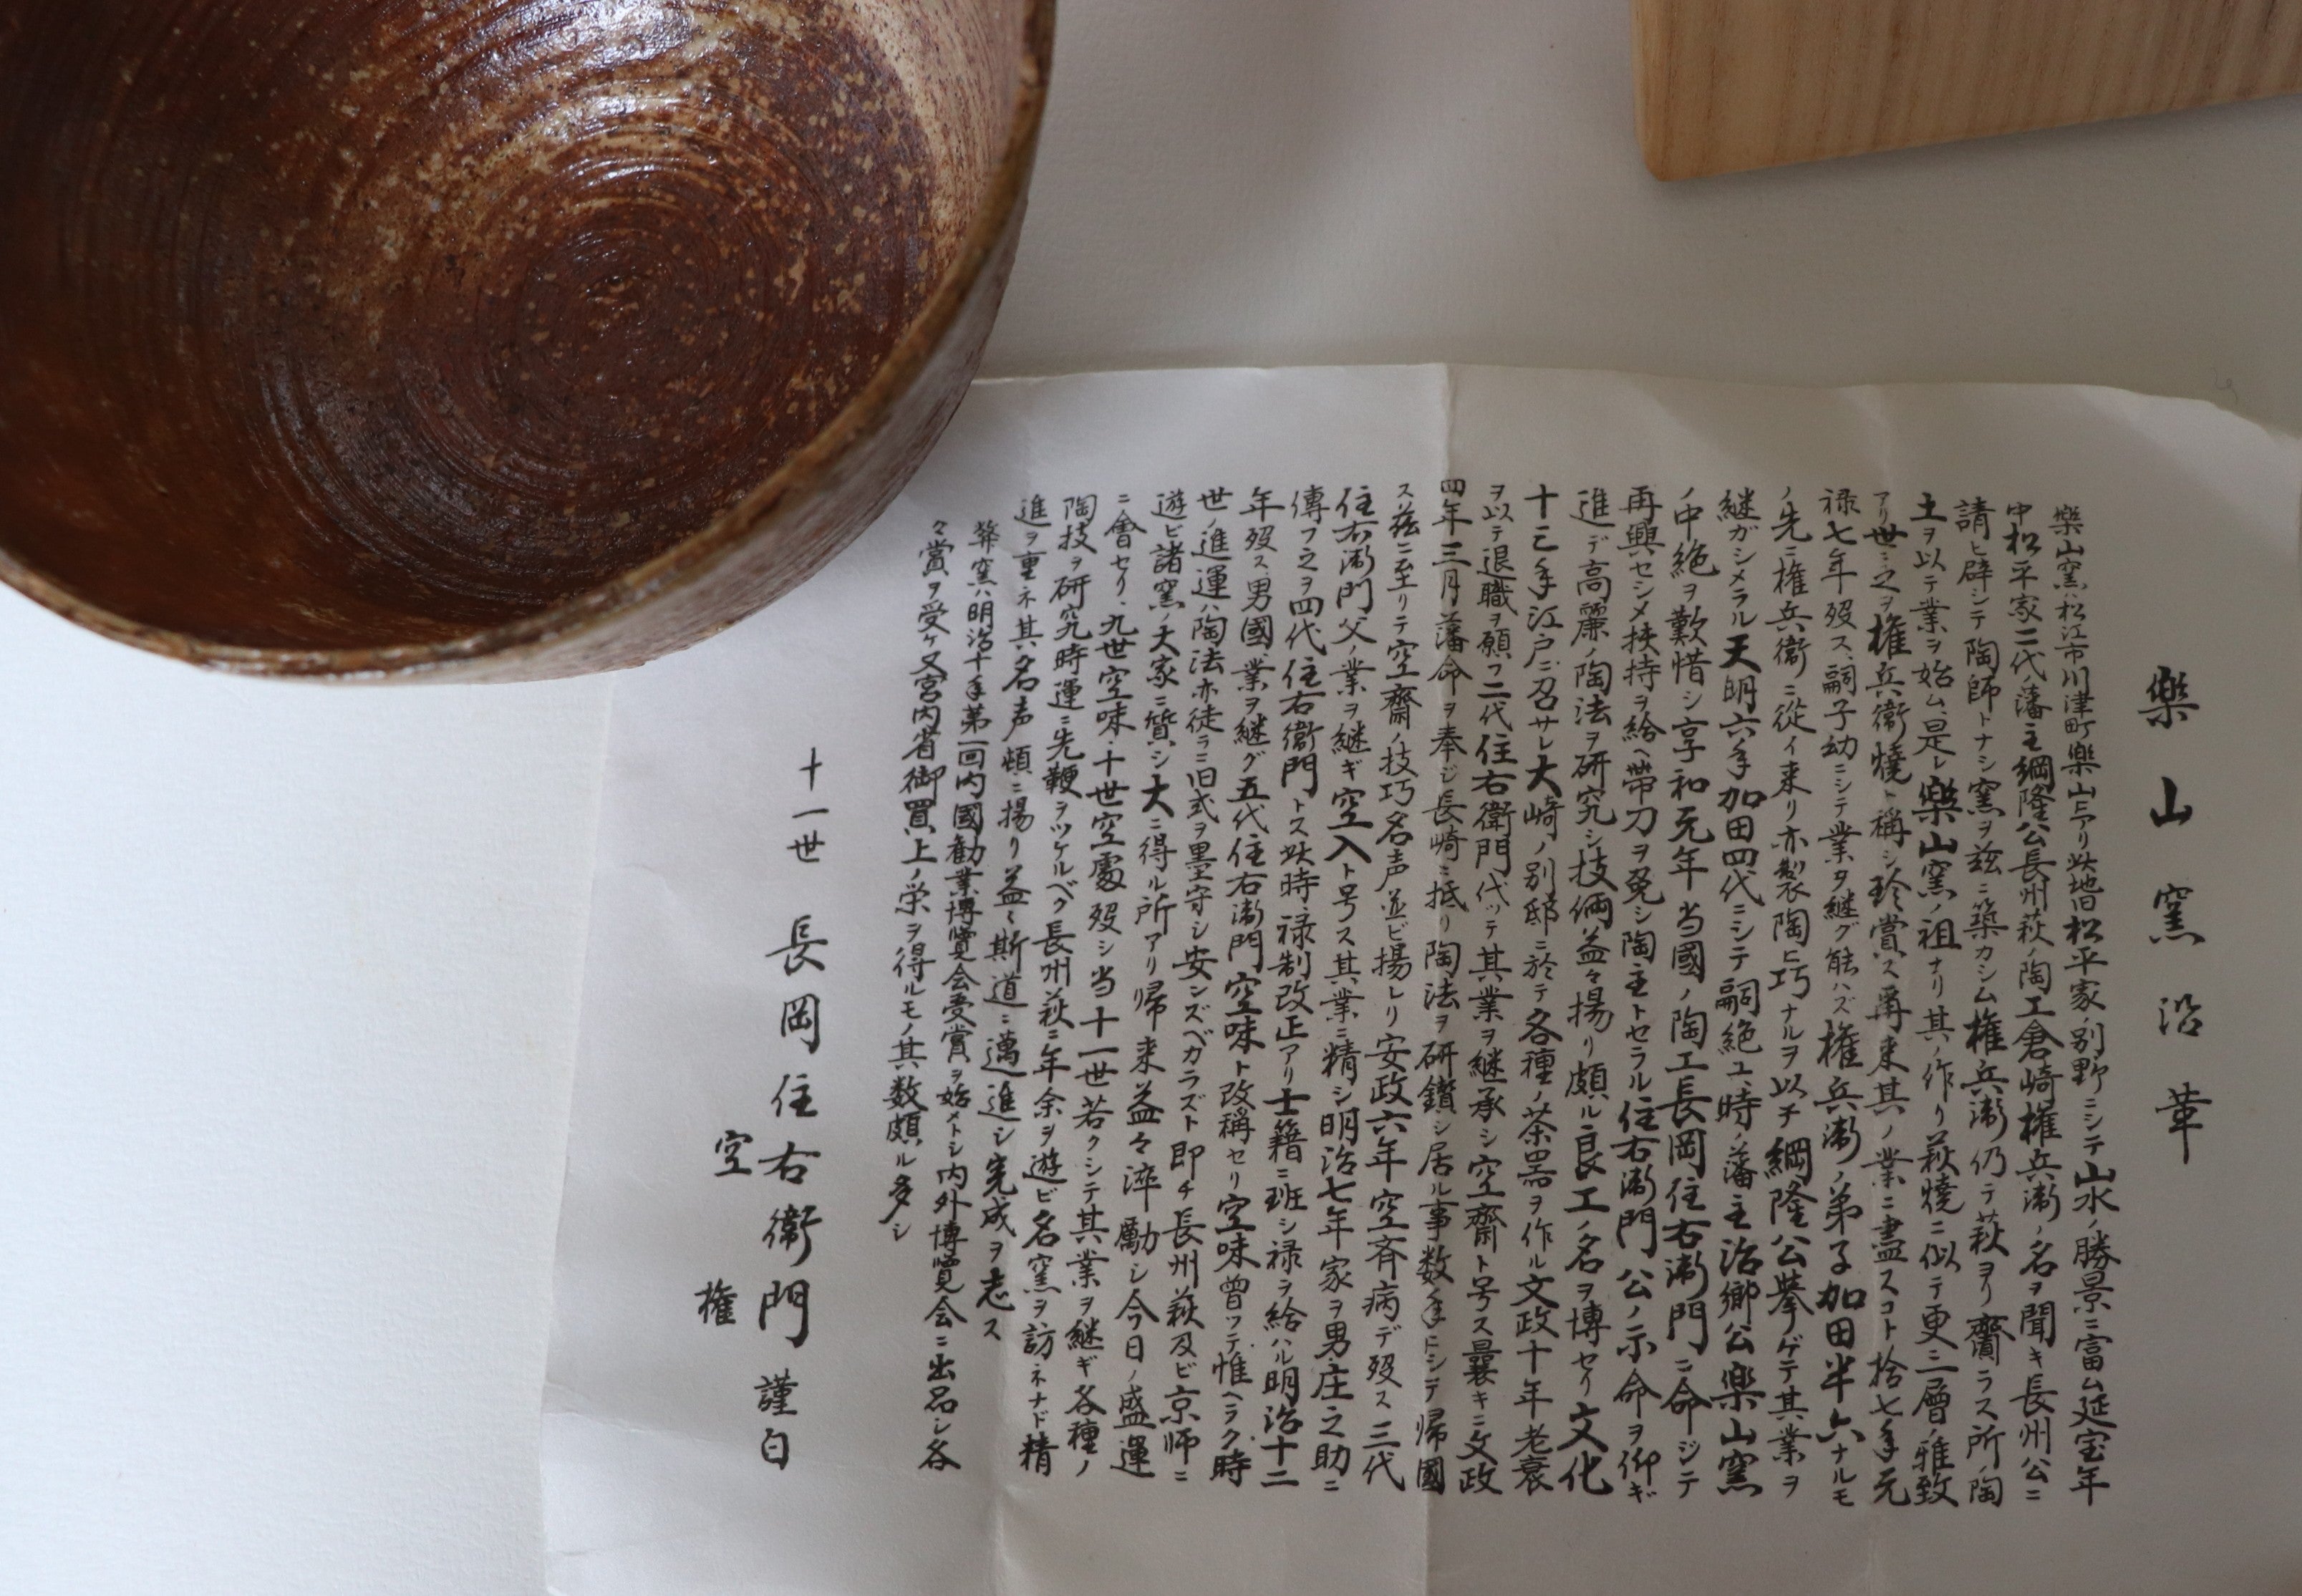 樂山窯沿革
樂山窯ハ松江市川津町樂山ニアリ此地旧松平家ノ別野ニシテ山水ノ勝景ニ富ム延宝年
中松平家二代ノ藩主綱隆公長州萩ノ陶工倉崎権兵衞ノ名ヲ聞キ長州公ニ
請ヒ辟シテ陶師トナシ窯ヲ茲ニ築カシム権兵衞仍テ萩ヨリ齎ラス所ノ陶
土ヲ以テ業ヲ始ム、是レ樂山窯ノ祖ナリ其ノ作リ萩燒ニ似テ更ニ一層ノ雅致
アリ世ニ之ヲ権兵衞燒ト稱シ珍賞ス爾来其ノ業ニ盡スコト拾七年元
禄七年歿ス、嗣子幼ニシテ業ヲ継グ能ハズ権兵衞ノ弟子加田半六ナルモ
ノ先ニ権兵衞ニ從イ来リ亦製陶ニ巧ナルヲ以テ綱隆公挙ゲテ其業ヲ
継ガシメラル天明六年加田四代ニシテ嗣絶エ、時ノ藩主治鄉公樂山窯
ノ中絶ヲ歎惜シ享和元年当國ノ陶工長岡住右衞門ニ命ジテ
再興セシメ扶持ヲ給ヘ帯刀ヲ免シ陶主トセラル住右衞門公ノ示命ヲ仰ギ
進デ高麗ノ陶法ヲ研究シ技倆益々揚リ頗ル良工ノ名ヲ博セリ文化
十三年江戸ニ召サレ大崎ノ別邸ニ於テ各種ノ茶器ヲ作ル文政十年老衰
ヲ以テ退職ヲ願フ二代住右衛門代ッテ其業ヲ継承シ空齋ト号ス曩キニ文政
四年三月藩命ヲ奉ジ長崎ニ抵リ陶法ヲ研鑽シ居ル事数年ニシテ帰國
ス茲ニ至リテ空齋ノ技巧名声並ビ揚レリ安政六年空斉病デ歿ス三代
住右衞門父ノ業ヲ継ギ空入ト号ス其業ニ精シ明治七年家ヲ男庄之助ニ
傳フ之ヲ四代住右衞門トス此時禄制改正アリ士籍ニ班シ禄ヲ給ハル明治十二
年歿ス男國業ヲ継グ五代住右衞門空味ト改稱セリ空味曽ッテ惟ヘラク時
世ノ進運ハ陶法亦徒ラニ旧式ヲ墨守シ安ンズベカラズト即チ長州萩及ビ京師ニ
遊ビ諸窯ノ大家ニ質シ大ニ得ル所アリ帰来益々淬励シ今日ノ盛運
ニ會セリ、九世空味・十世空處歿シ当十一世若クシテ其業ヲ継ギ各種ノ
陶技ヲ研究時運ニ先鞭ヲツケルベク長州萩ニ年余ヲ遊ビ名窯ヲ訪ネナド精
進ヲ重ネ其名声頓ニ揚リ益々斯道ニ邁進シ完成ヲ志ス
弊窯ハ明治十年第一回内國勧業博覧会受賞ヲ始メトシ内外博覽会ニ出品シ各
々賞ヲ受ケ又宮内省御買上ノ栄ヲ得ルモノ其数頗ル多シ
十一世 長岡住右衞門 謹白
空権